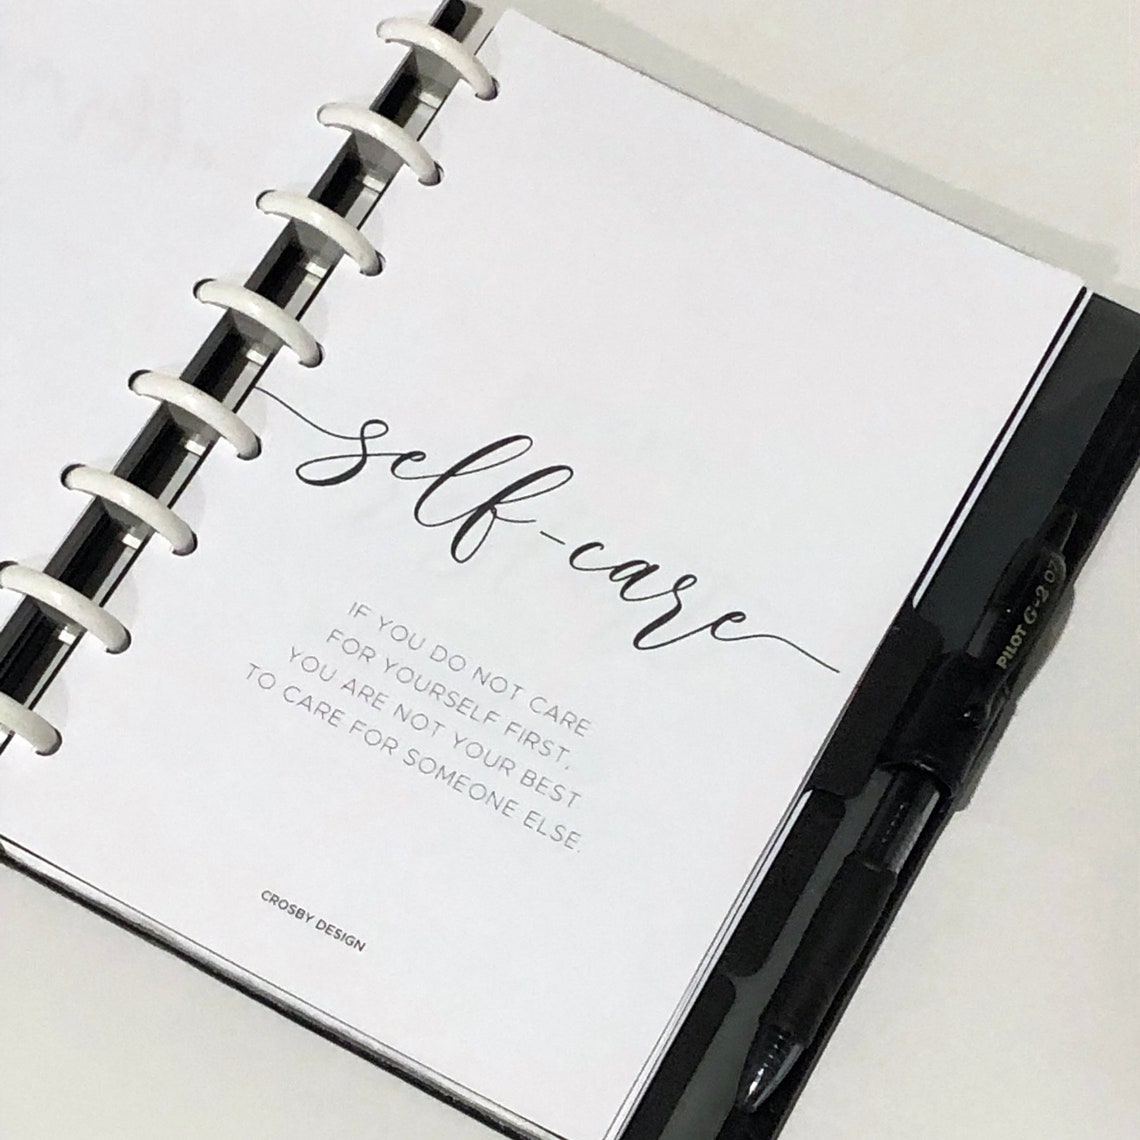 self-care
IF YOU DO NOT CARE
FOR YOURSELF FIRST,
YOU ARE NOT YOUR BEST
TO CARE FOR SOMEONE ELSE.
CROSBY DESIGN
PILOT G-2 07